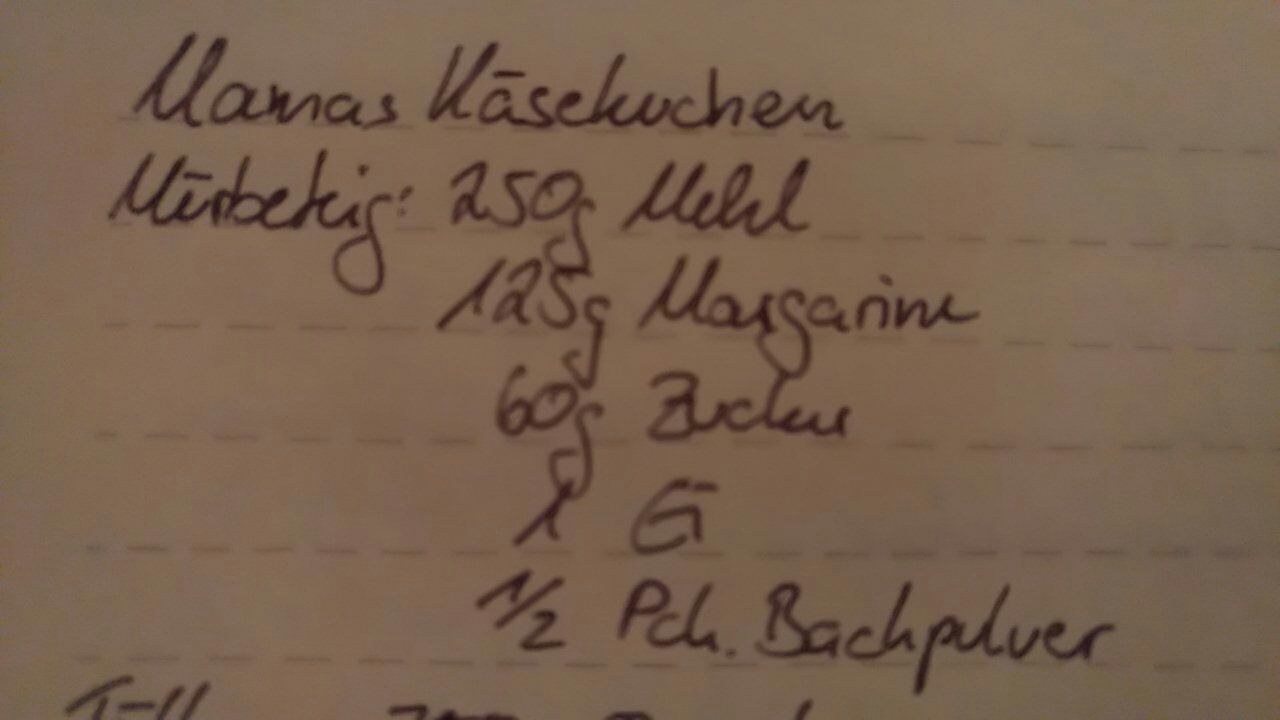 Mamas Käsekuchen
Mürbeteig: 250g Mehl
125g Margarine
60g Zucker
1 Ei
1/2 Pck. Backpulver